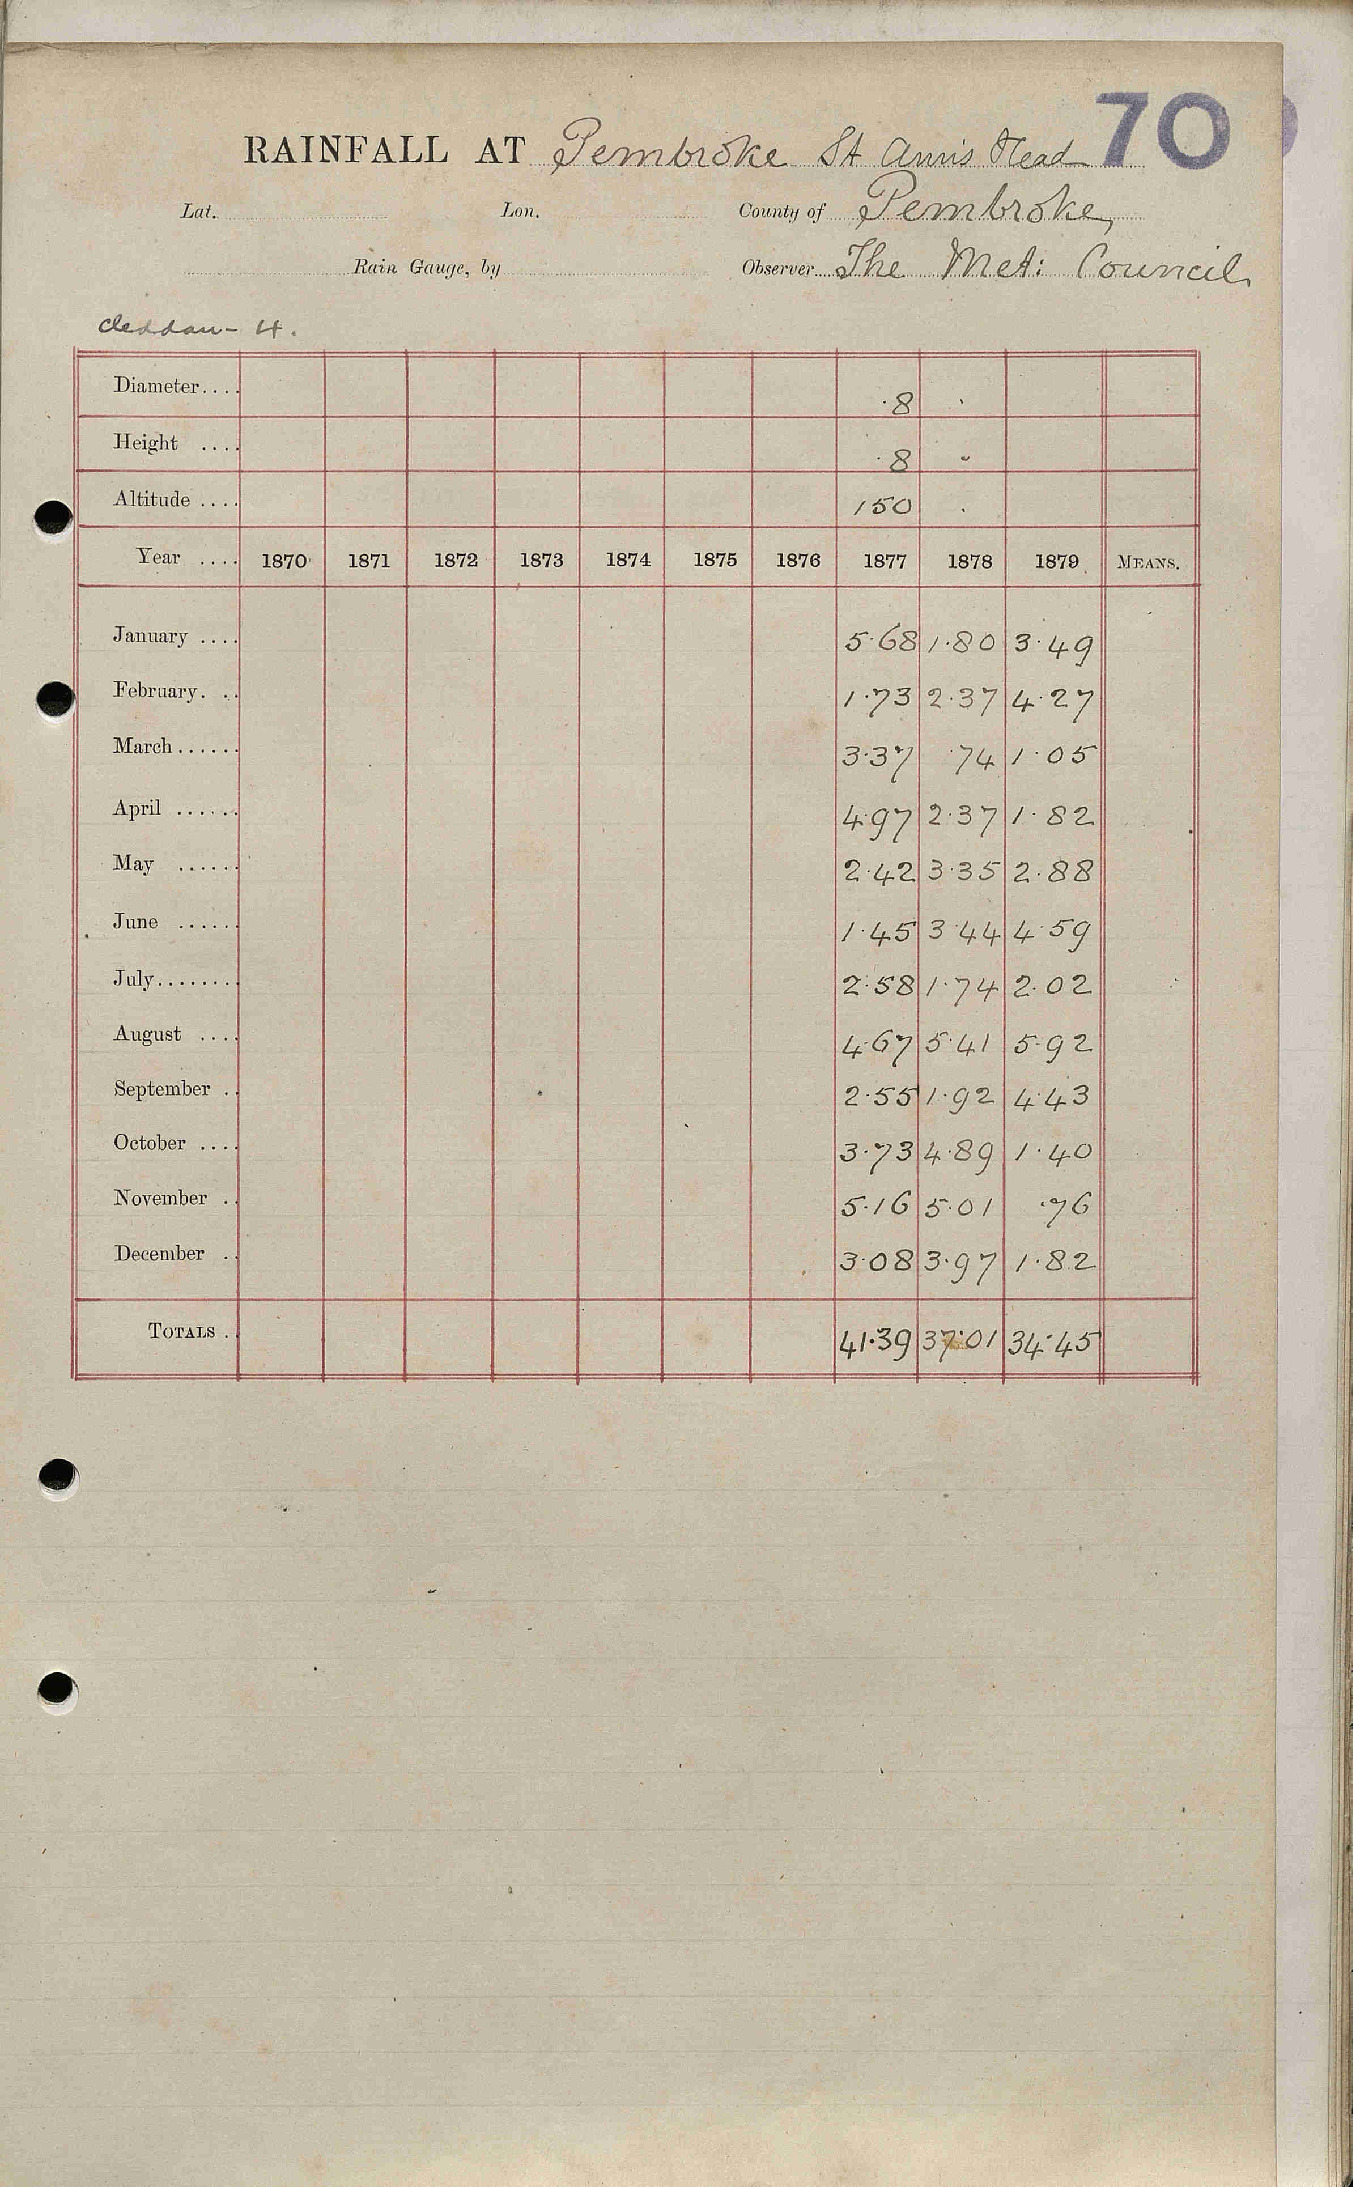 70
RAINFALL AT Pembroke St Ann's Head
Lat. Lon. County of Pembroke,
Rain Gauge, by Observer The Met: Council.
Cleddau - 4.
Diameter.... ·8 ·
Height .... ·8 "
Altitude .... 150 ·
Year .... 1870 1871 1872 1873 1874 1875 1876 1877 1878 1879 MEANS.
January .... 5·68 1·80 3·49
February. .. 1·73 2·37 4·27
March...... 3·37 ·74 1·05
April ...... 4·97 2·37 1·82
May ...... 2·42 3·35 2·88
June ...... 1·45 3·44 4·59
July........ 2·58 1·74 2·02
August .... 4·67 5·41 5·92
September .. 2·55 1·92 4·43
October .... 3·73 4·89 1·40
November .. 5·16 5·01 ·76
December .. 3·08 3·97 1·82
TOTALS .. 41·39 37·01 34·45